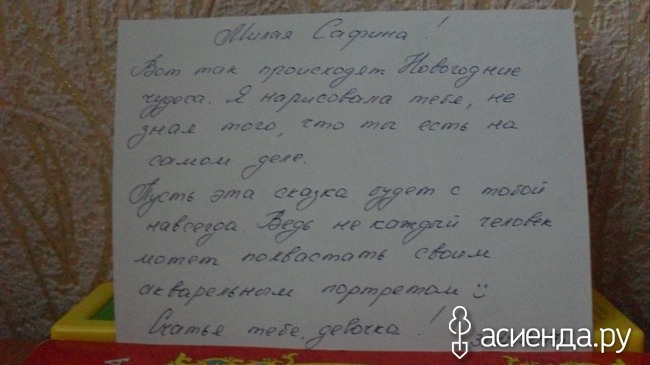 Милая Сафина!
Вот так происходят Новогодние
чудеса. Я нарисовала тебя, не
зная того, что ты есть на
самом деле.
Пусть эта сказка будет с тобой
навсегда. Ведь не каждый человек
может похвастать своим
акварельным портретом :)
Счастья тебе, девочка!
асиенда.ру